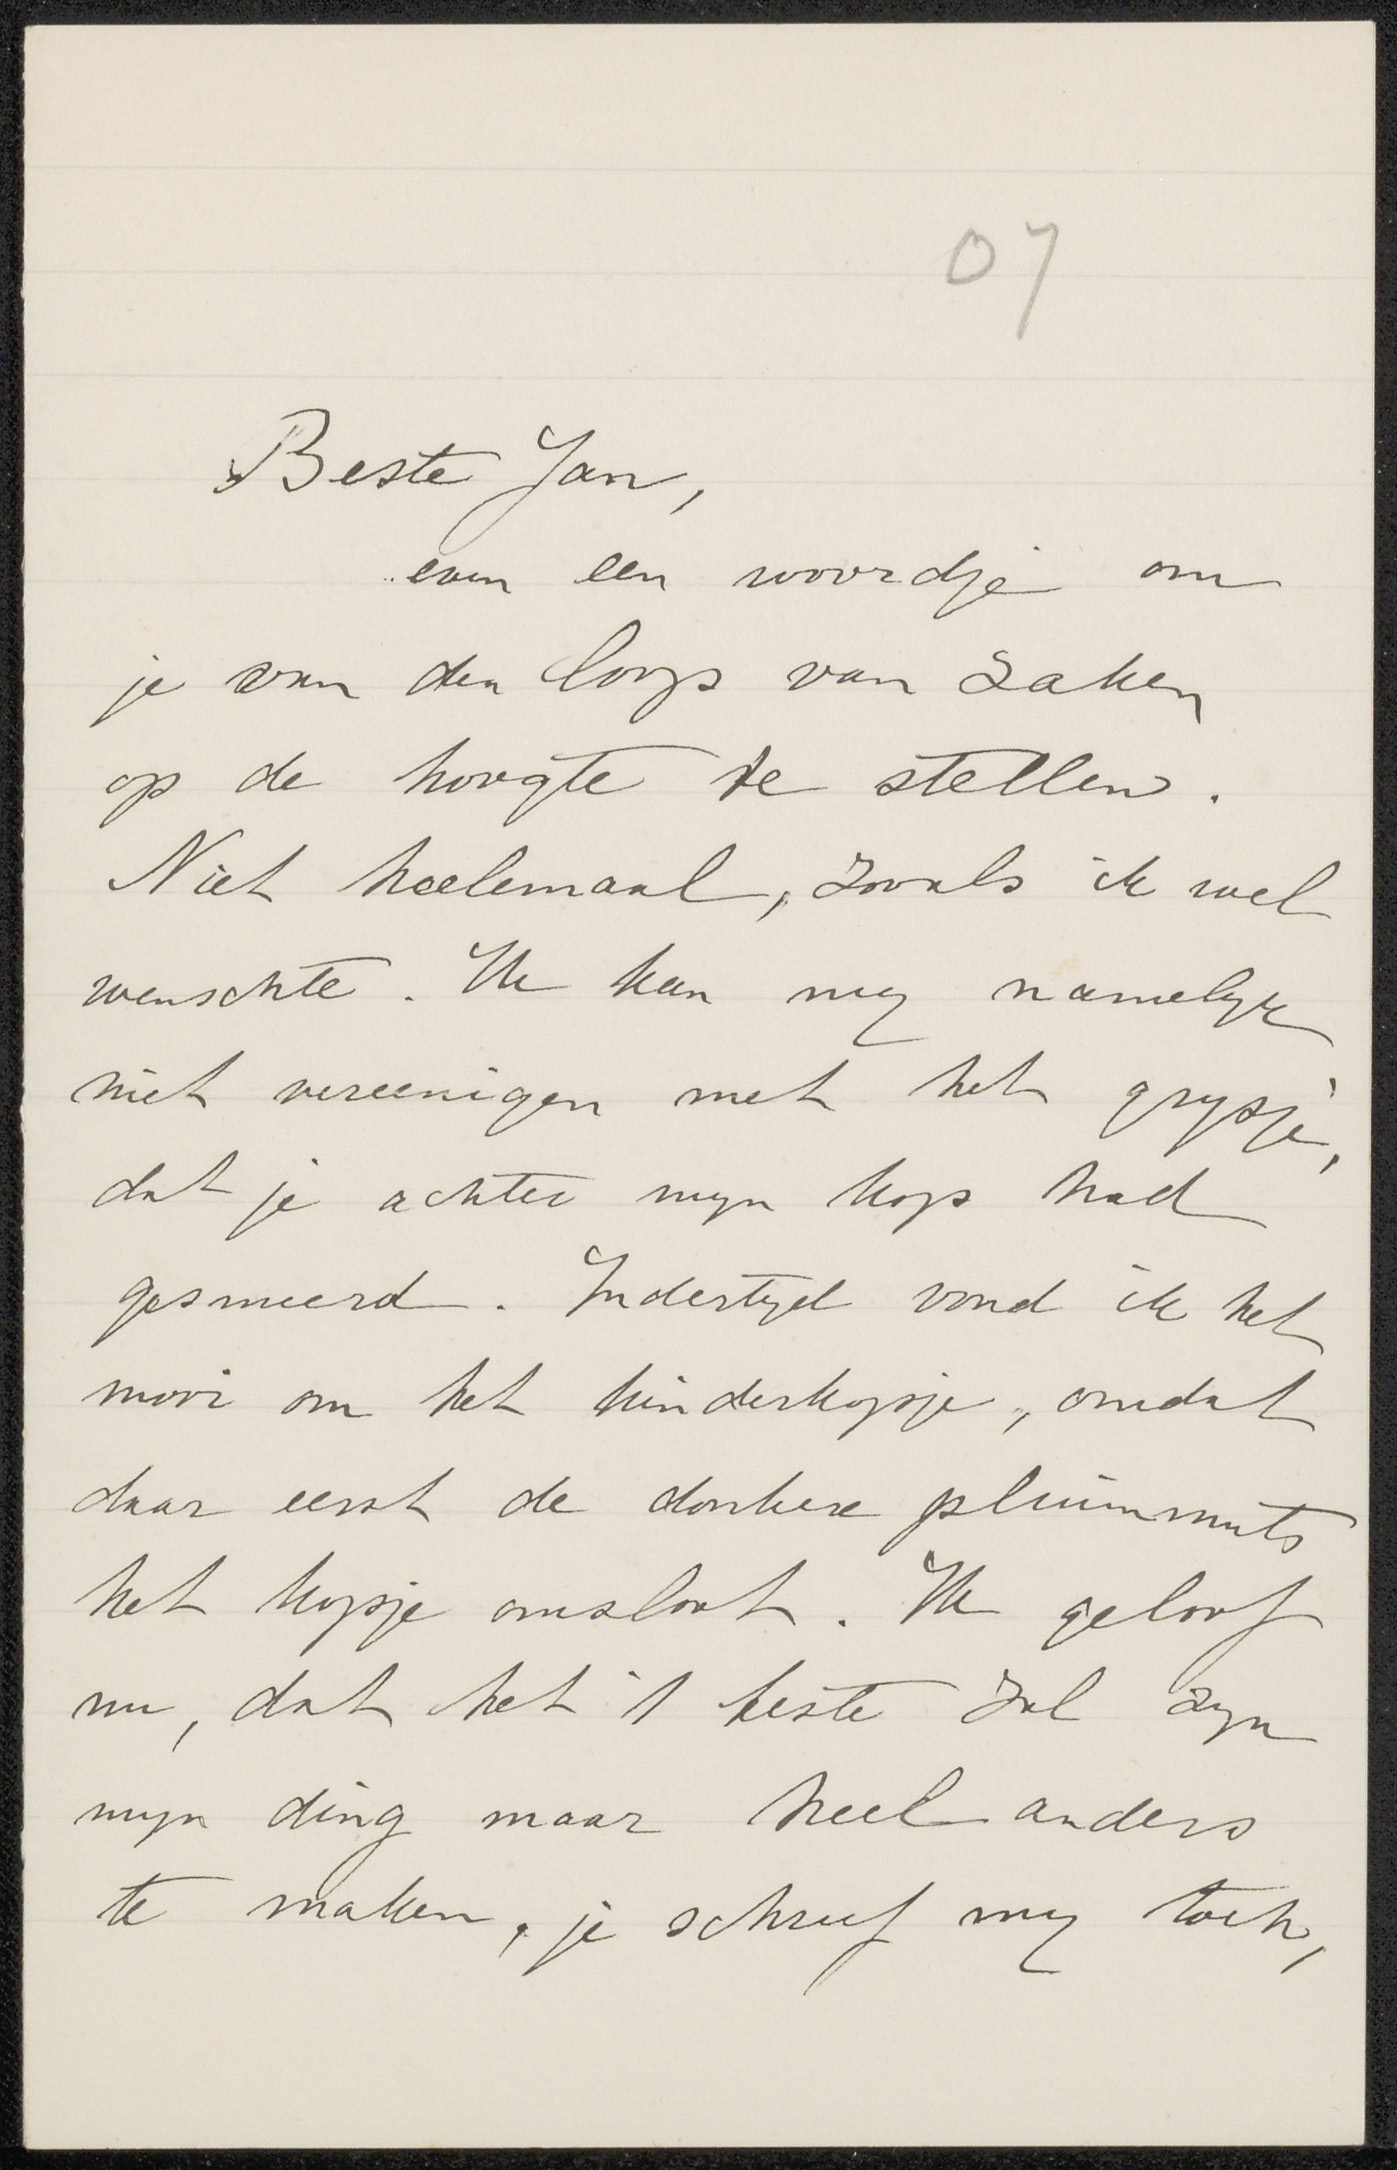 07
Beste Jan,
even een woordje om
je van den loop van zaken
op de hoogte te stellen.
Niet heelemaal, zooals ik wel
wenschte. Ik kan my namelyk
niet vereenigen met het grysje,
dat je achter myn kop had
gesmeerd. Indertyd vond ik het
mooi om het kinderkopje, omdat
daar eerst de donkere pluimmuts
het kopje omsloot. Ik geloof
nu, dat het 't beste zal zyn
myn ding maar heel anders
te maken, je schreef my toch,